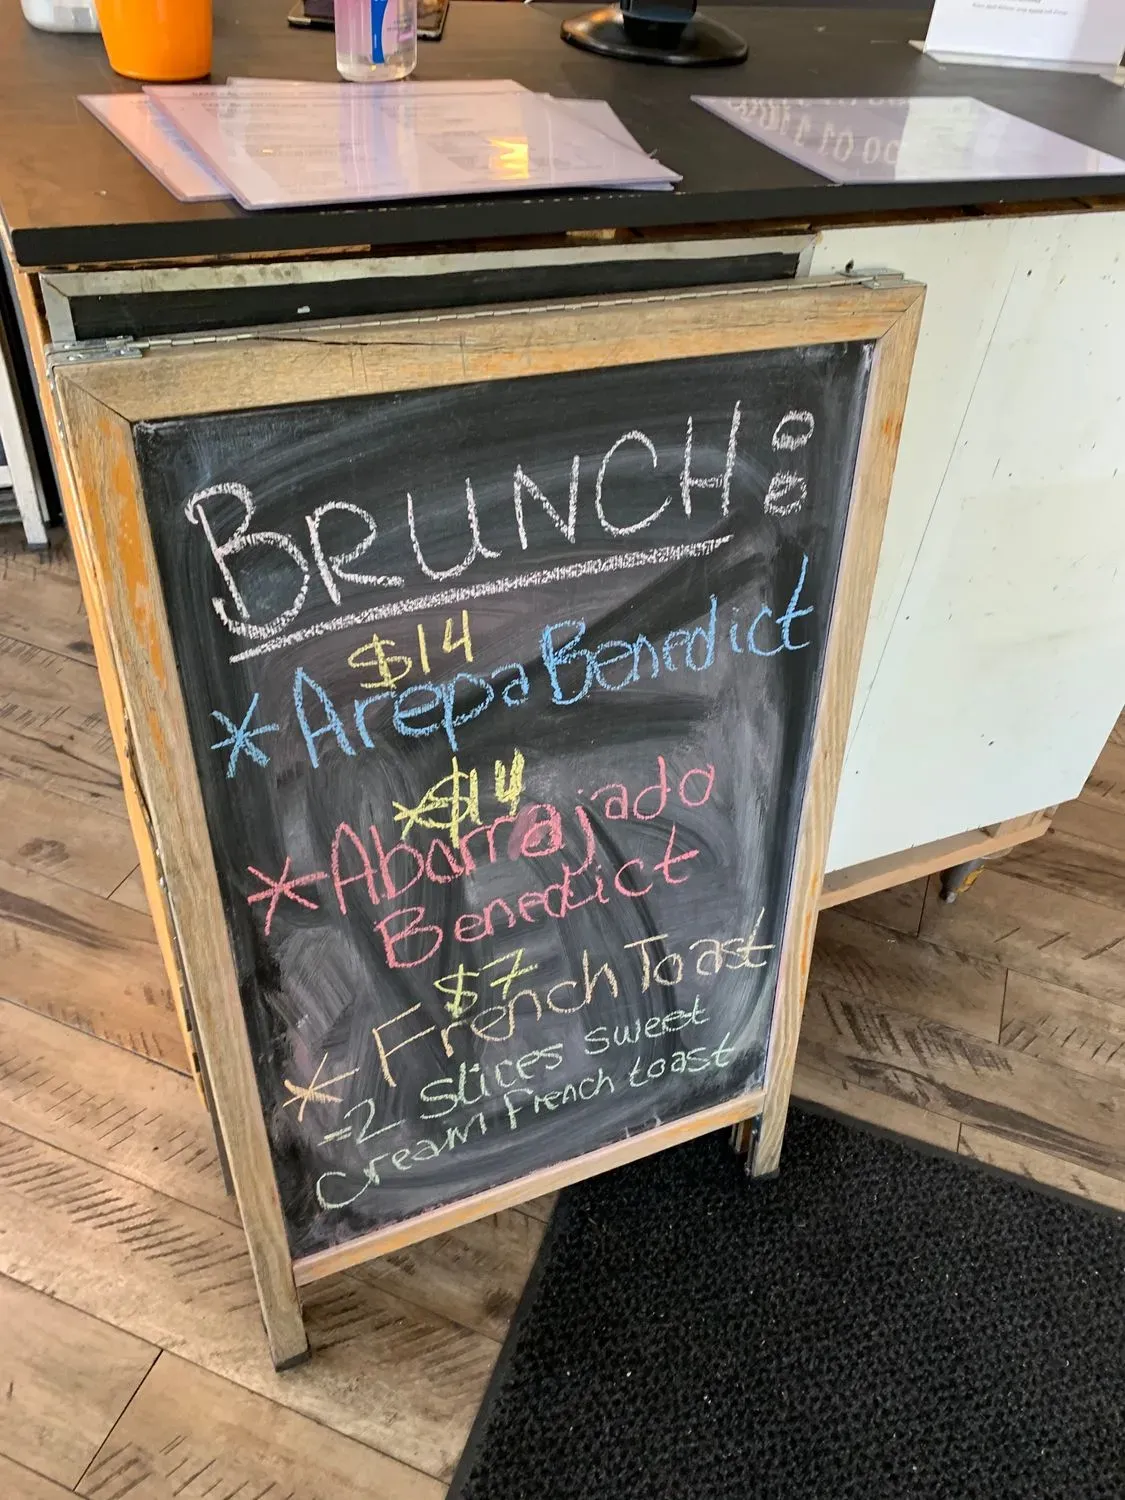 BRUNCH:
$14
* Arepa Benedict
$14
* Abarrajado
Benedict
$7
* French Toast
-2 slices sweet
cream French toast